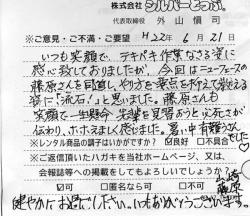 株式会社
シルバーとっぷ
代表取締役 外山慎司
※ご意見・ご不満・ご要望 H22年6月21日
いつも笑顔で、テキパキ作業なさる姿に
感心致しておりましたが、今回はニューフェースの
藤原さんを同道し、やり方を要点を押えて教える
姿に「流石!」と思いました。藤原さんも
笑顔で一生懸命、先輩を見習おうと必死さが
伝わり、ホホえましく感じました。暑い中有難う
※レンタル商品の調子はいかがですか? 良好 不具合
※ご返信頂いたハガキを当社ホームページ、又は
会報誌等への掲載をしてもよろしいでしょうか?
可 匿名なら可 不可
健やかにお過ごし下さい。いつもありがとうございます。
藤原